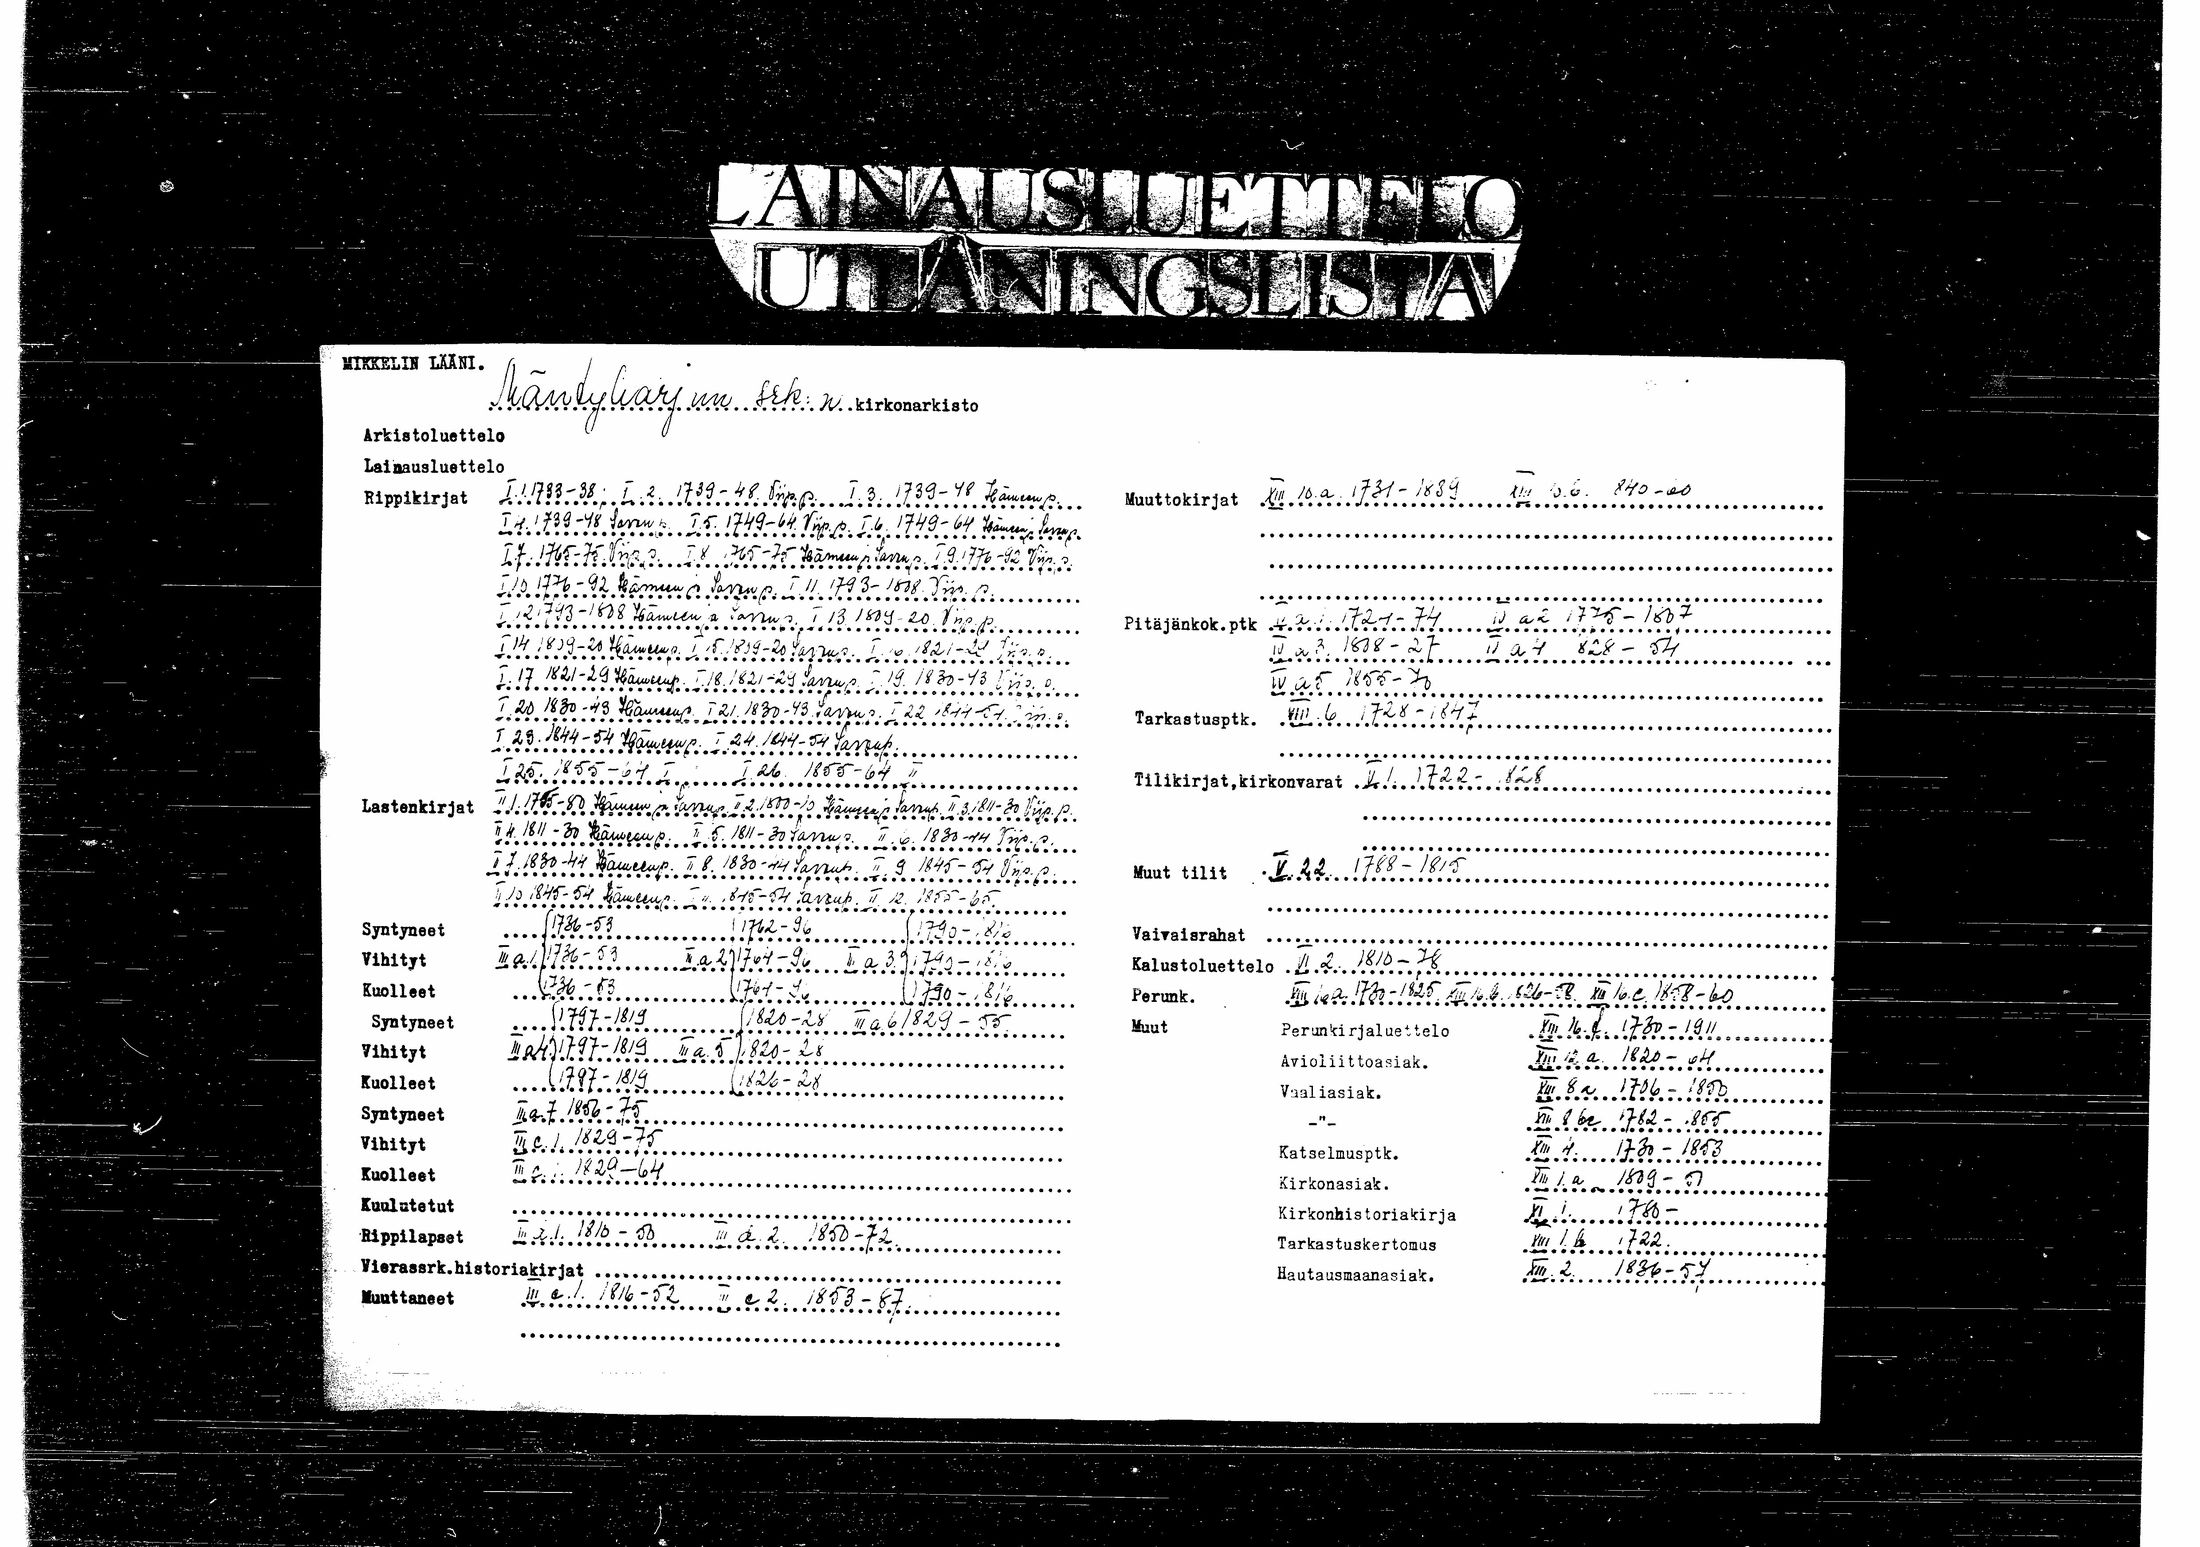 LAINAUSLUETTELO
UTLÅNINGSLISTA
MIKKELIN LÄÄNI.
Mäntyharjun srk:n kirkonarkisto
Arkistoluettelo
Lainausluettelo
Rippikirjat I.1.1733-38; I.2. 1739-48. Viip.p. I.3. 1739-48 Hämeenp.
I 4. 1739-48 Savon p. I.5. 1749-64. Viip.p. I.6. 1749-64 Hämeen ja Savon p.
I 7. 1765-75. Viip.p. I.8. 1765-75 Hämeen ja Savon p. I.9. 1776-92 Viip.p.
I.10 1776-92 Hämeen ja Savon p. I 11. 1793-1808. Viip.p.
I 12 1793-1808 Hämeen ja Savon p. I 13. 1809-20. Viip.p.
I 14 1809-20 Hämeenp. I 15. 1809-20 Savonp. I. 16. 1821-29 Viip.p.
I. 17 1821-29 Hämeenp. I.18. 1821-29 Savon p. I.19. 1830-43 Viip.p.
I 20 1830-43 Hämeenp. I 21. 1830-43 Savon p. I 22 1844-54. Viip.p.
I 23. 1844-54 Hämeenp. I 24. 1844-54 Savonp.
I 25. 1855-64 I I.26. 1855-64 II
Lastenkirjat II 1. 1765-80 Hämeen ja Savonp. II 2. 1800-10 Hämeen ja Savonp. II 3. 1811-30 Viip.p.
II 4. 1811-30 Hämeenp. II 5. 1811-30 Savon p. II. 6. 1830-44 Viip.p.
II 7. 1830-44 Hämeenp. II 8. 1830-44 Savonp. II. 9 1845-54 Viip.p.
II 10 1845-54 Hämeenp. II 11. 1845-54 Savonp. II. 12. 1855-65.
Syntyneet 1736-53 1762-96 1790-1816
Vihityt III a.1. 1736-53 III.a 2 1764-96 III a 3. 1790-1816
Kuolleet 1736-53 1764-96 1790-1816
Syntyneet 1797-1819 1820-28 III a.6 1829-55.
Vihityt III a4. 1797-1819 III a.5 1820-28
Kuolleet 1797-1819 1826-28
Syntyneet III.a.7. 1856-75
Vihityt III c.1. 1829-75
Kuolleet III c.1. 1829-64
Kuulutetut
Rippilapset III d.1. 1810-50 III d.2. 1850-72.
Vierassrk.historiakirjat
Muuttaneet III e.1. 1816-52 III e 2. 1853-87.
Muuttokirjat XIII 10.a. 1731-1839 XIII 10.b. 1840-60
Pitäjänkok.ptk IV.a.1. 1724-74 IV a 2 1775-1807
IV a 3. 1808-27 IV a 4 1828-54
IV a 5 1855-70
Tarkastusptk. VIII.6. 1728-1847
Tilikirjat,kirkonvarat V.1. 1722-1828
Muut tilit V.22. 1788-1815
Vaivaisrahat
Kalustoluettelo VI.2. 1810-78
Perunk. XIII 16.a. 1730-1825. XIII 16.b. 1826-58. XIII 16.c. 1858-60
Muut Perunkirjaluettelo XIII 16.f. 1730-1911
Avioliittoasiak. XIII 12 a. 1820-64
Vaaliasiak. XIII 8 a 1706-1850
-"- XIII 8 bc 1782-1855
Katselmusptk. XIII 4. 1730-1853
Kirkonasiak. XIII 1.a 1809-51
Kirkonhistoriakirja XI.1. 1780-
Tarkastuskertomus XIII 1.b 1722.
Hautausmaanasiak. XIII.2. 1836-57